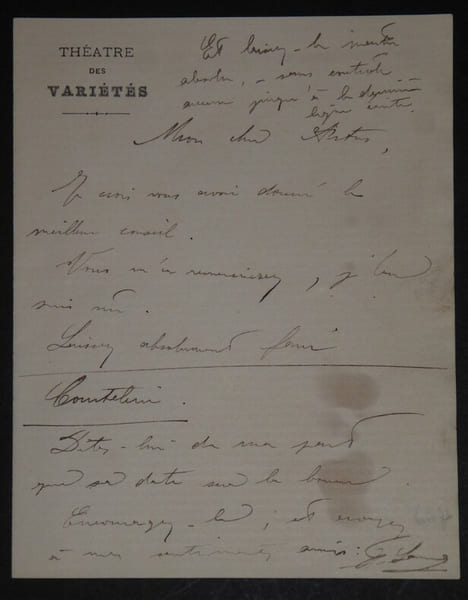 THÉATRE
DES
VARIÉTÉS
Et laissez-le mentir
absolu, - sans contrôle
aucun jusqu'à la dernière
ligne écrite.
Mon cher Artus,
Je crois vous avoir donné le
meilleur conseil.
Vous m'en remercierez, j'en
suis sûr.
Laissez absolument faire
Courteline.
Dites-lui de ma part
que sa date sera la bonne.
Encouragez-le; et croyez
à mes sentiments amis: